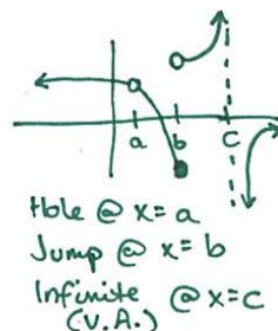 a b c
Hole @ x = a
Jump @ x = b
Infinite @ x = c
(V.A.)